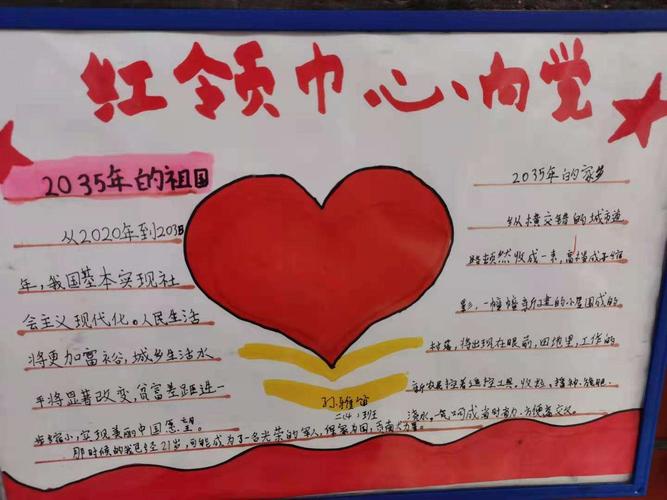 红领巾心向党
2035年的祖国
从2020年到2035
年,我国基本实现社
会主义现代化。人民生活
将更加富裕,城乡生活水
平将显著改变,贫富差距进一
步缩小,实现美丽中国愿望。
那时候的我已经21岁,可能成为了一名光荣的军人,保家为国,贡献力量。
2035年的家乡
纵横交错的城市道
路顿然收成一束,高楼成了缩
影,一幢幢新建的小屋围成的
村落,将出现在眼前,田地里,工作的
新农民操控着遥控工具,收割、播种、施肥、
浇水,一气呵成省时省力
二(4)班